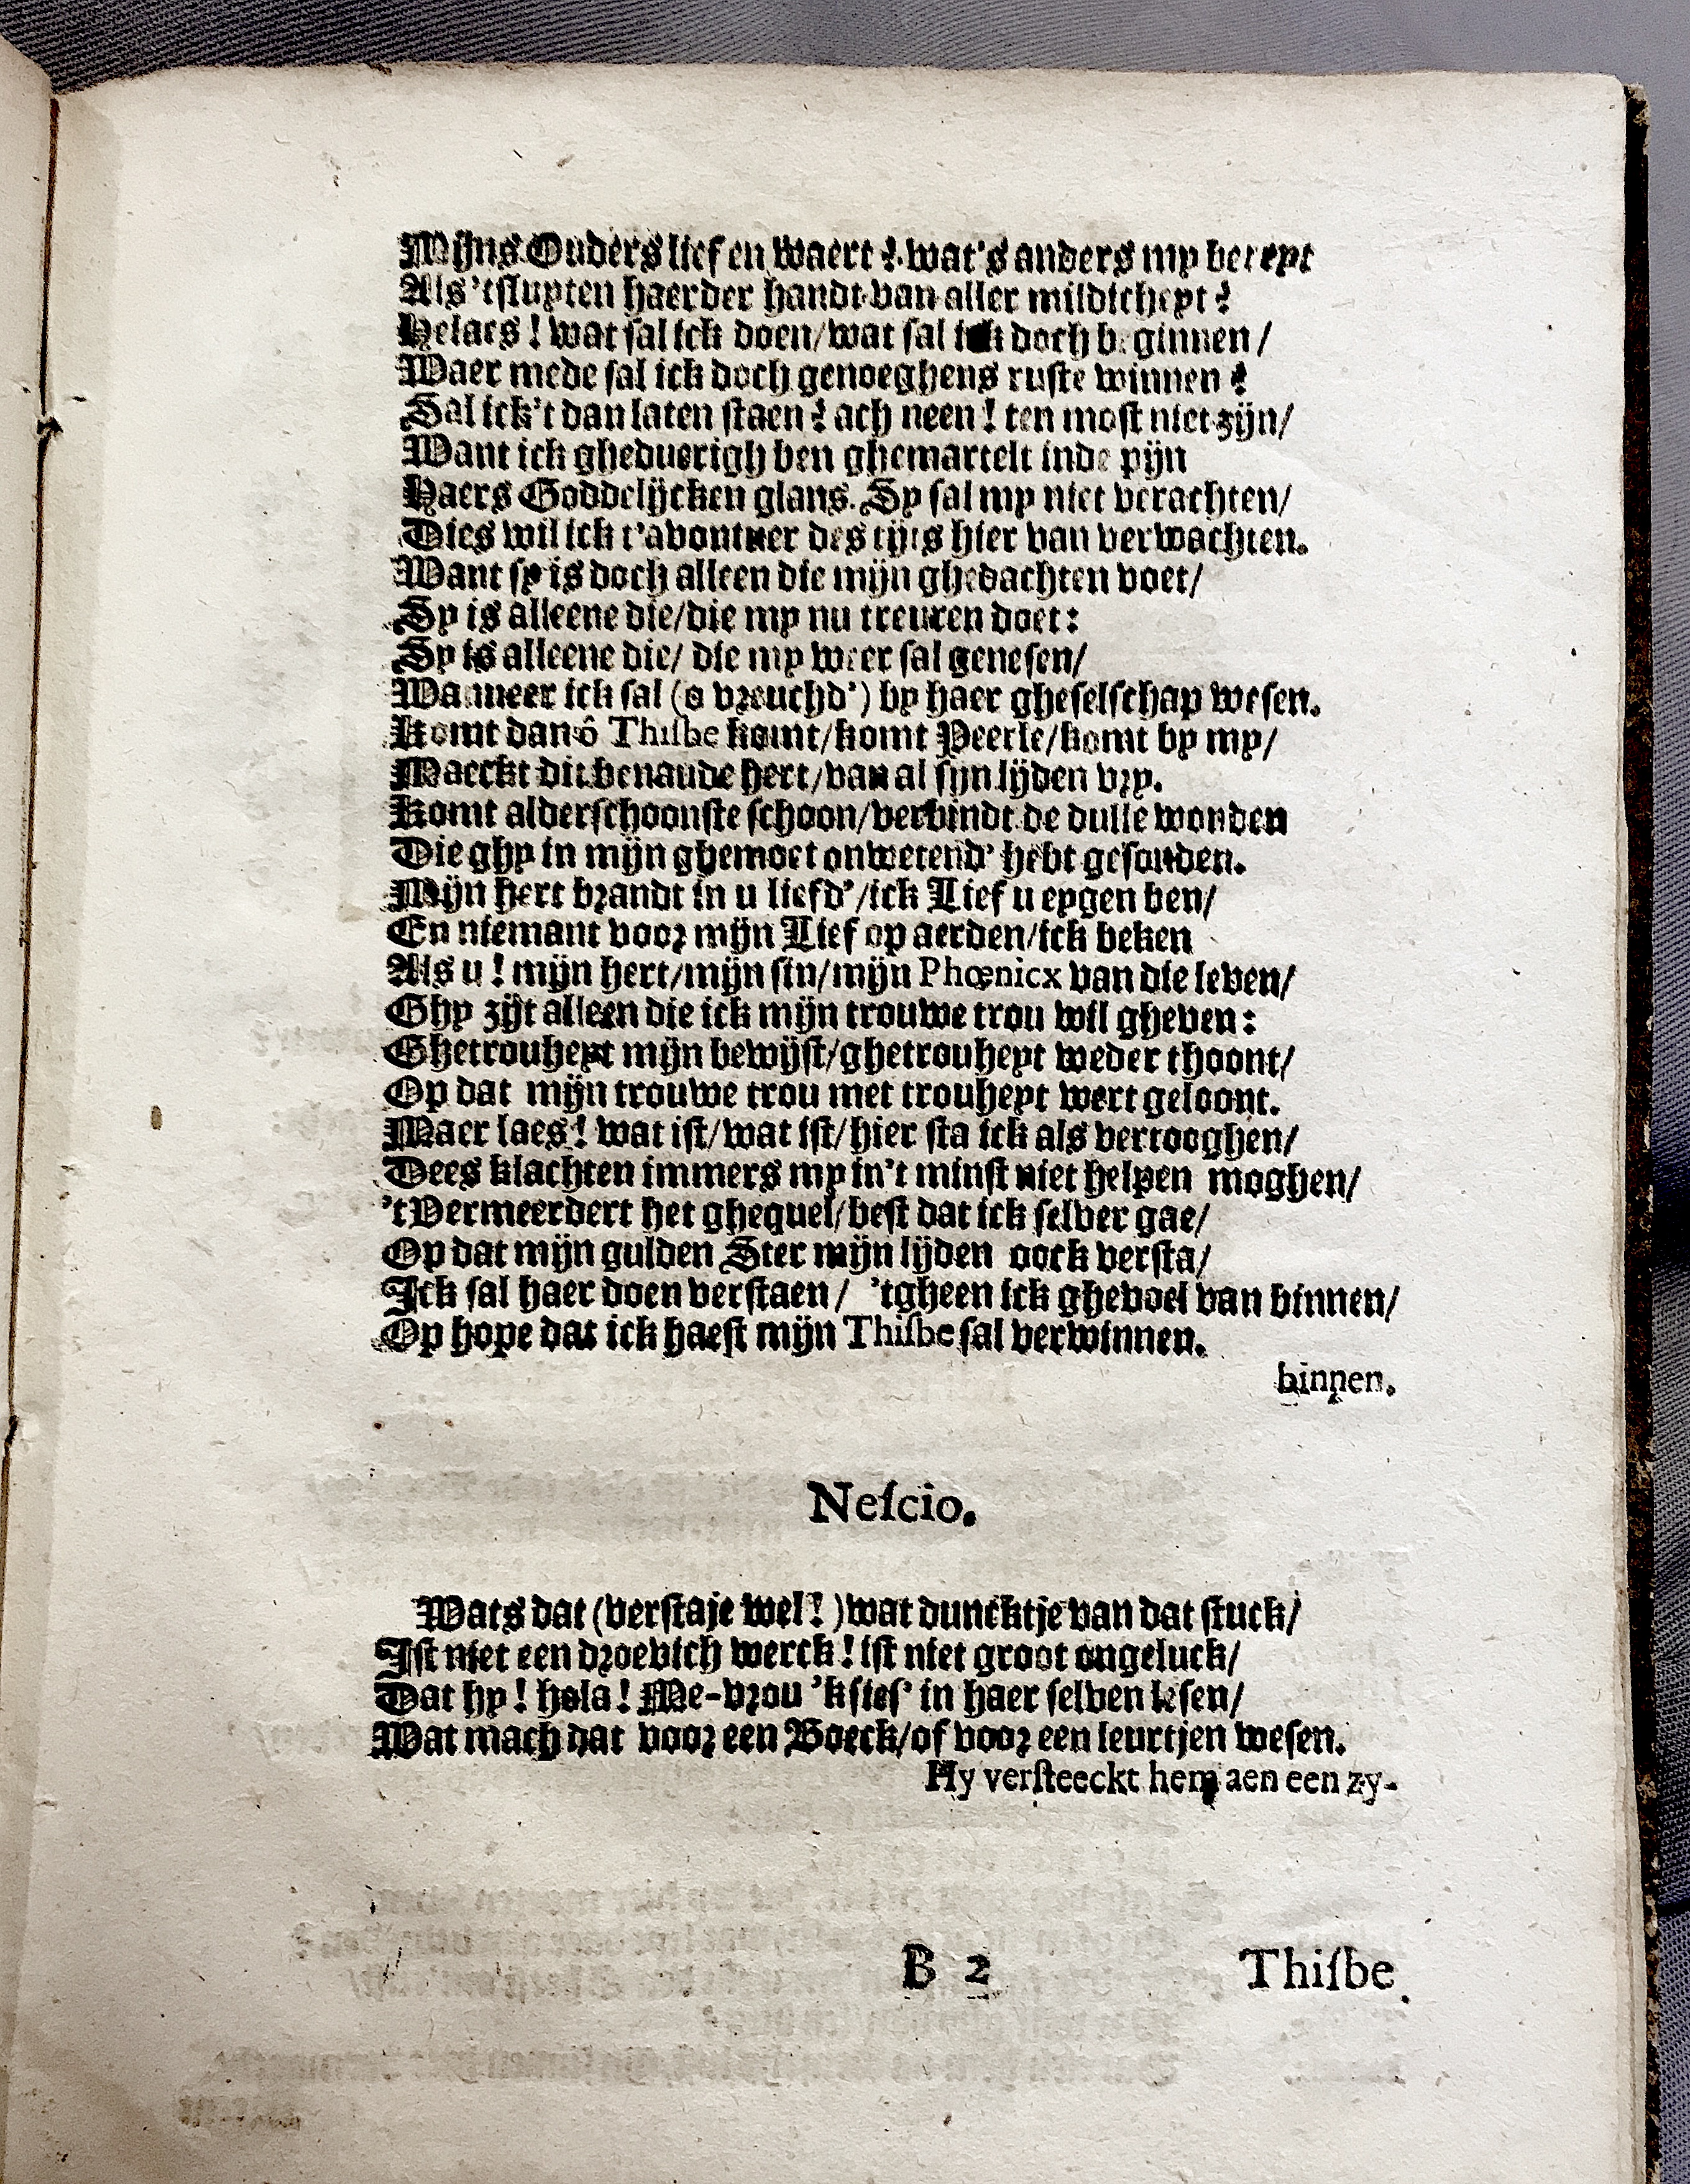 Mijns Ouders lief en waert? wat's anders my bereyt
Als 'tsluyten haerder handt van aller mildicheyt?
Helaes! wat sal ick doen/wat sal ick doch beginnen/
Waer mede sal ick doch genoeghens ruste winnen?
Sal ick't dan laten staen? ach neen! ten most niet zijn/
Want ick gheduerigh ben ghemartelt inde pijn
Haers Goddelijcken glans. Sy sal my niet verachten/
Dies wil ick t'avontuer des tijts hier van verwachten.
Want sy is doch alleen die mijn ghedachten voet/
Sy is alleene die/die my nu treuren doet:
Sy is alleene die/ die my weer sal genesen/
Wanneer ick sal (o vreuchd') by haer gheselschap wesen.
Komt dan ô Thisbe komt/komt Peerle/komt by my/
Maeckt dit benaude hert/van al sijn lijden vry.
Komt alderschoonste schoon/verbindt de dulle wonden
Die ghy in mijn ghemoet onwetend' hebt gesonden.
Mijn hert brandt in u liefd'/ick Lief u eygen ben/
En niemant voor mijn Lief op aerden/ick beken
Als u! mijn hert/mijn sin/mijn Phœnicx van die leven/
Ghy zijt alleen die ick mijn trouwe trou wil gheven:
Ghetrouheyt mijn bewijst/ghetrouheyt weder thoont/
Op dat mijn trouwe trou met trouheyt wert geloont.
Maer laes! wat ist/wat ist/hier sta ick als vertooghen/
Dees klachten immers my in't minst niet helpen moghen/
't Vermeerdert het ghequel/best dat ick selver gae/
Op dat mijn gulden Ster mijn lijden oock versta/
Ick sal haer doen verstaen/ 'tgheen ick ghevoel van binnen/
Op hope dat ick haest mijn Thisbe sal verwinnen.
binnen.
Nescio.
Wats dat (verstaje wel!) wat duncktje van dat stuck/
Ist niet een droevich werck! ist niet groot ongeluck/
Dat hy! hola! Me-vrou 'k sies' in haer selven lesen/
Wat mach dat voor een Boeck/of voor een leurtjen wesen.
Hy versteeckt hem aen een zy-
B 2 Thisbe